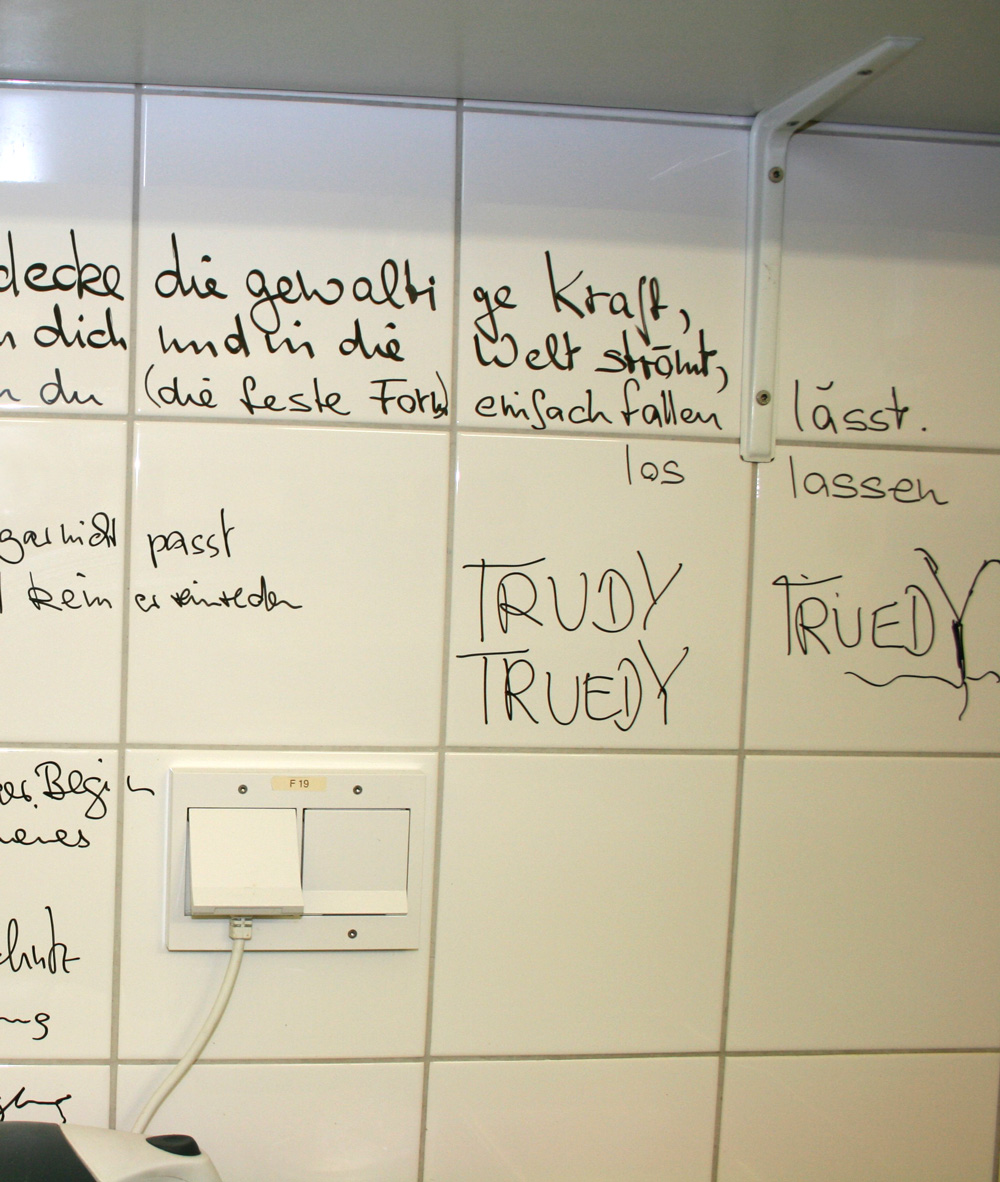 decke die gewaltige Kraft,
n dich und in die Welt strömt,
n du (die feste Form) einfach fallen lässt.
los lassen
gar nicht passt
kein
TRUDY
TRUEDY TRUEDY
Begin
neues
F 19
chutz